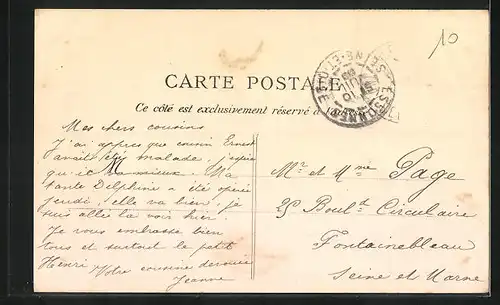 10
CARTE POSTALE
Ce côté est exclusivement réservé à l'adresse
ESSONNES
SEINE-ET-OISE
Mes chers cousins
J'ai appris que cousin Ernest
avait été malade, j'espère
qu'il va mieux. Ma
tante Delphine a été opérée
jeudi, elle va bien, je
suis allée la voir hier.
Je vous embrasse bien
tous et surtout le petit
Henri. Votre cousine dévouée
Jeanne
Mr et Mme Page
25 Boult Circulaire
Fontainebleau
Seine et Marne